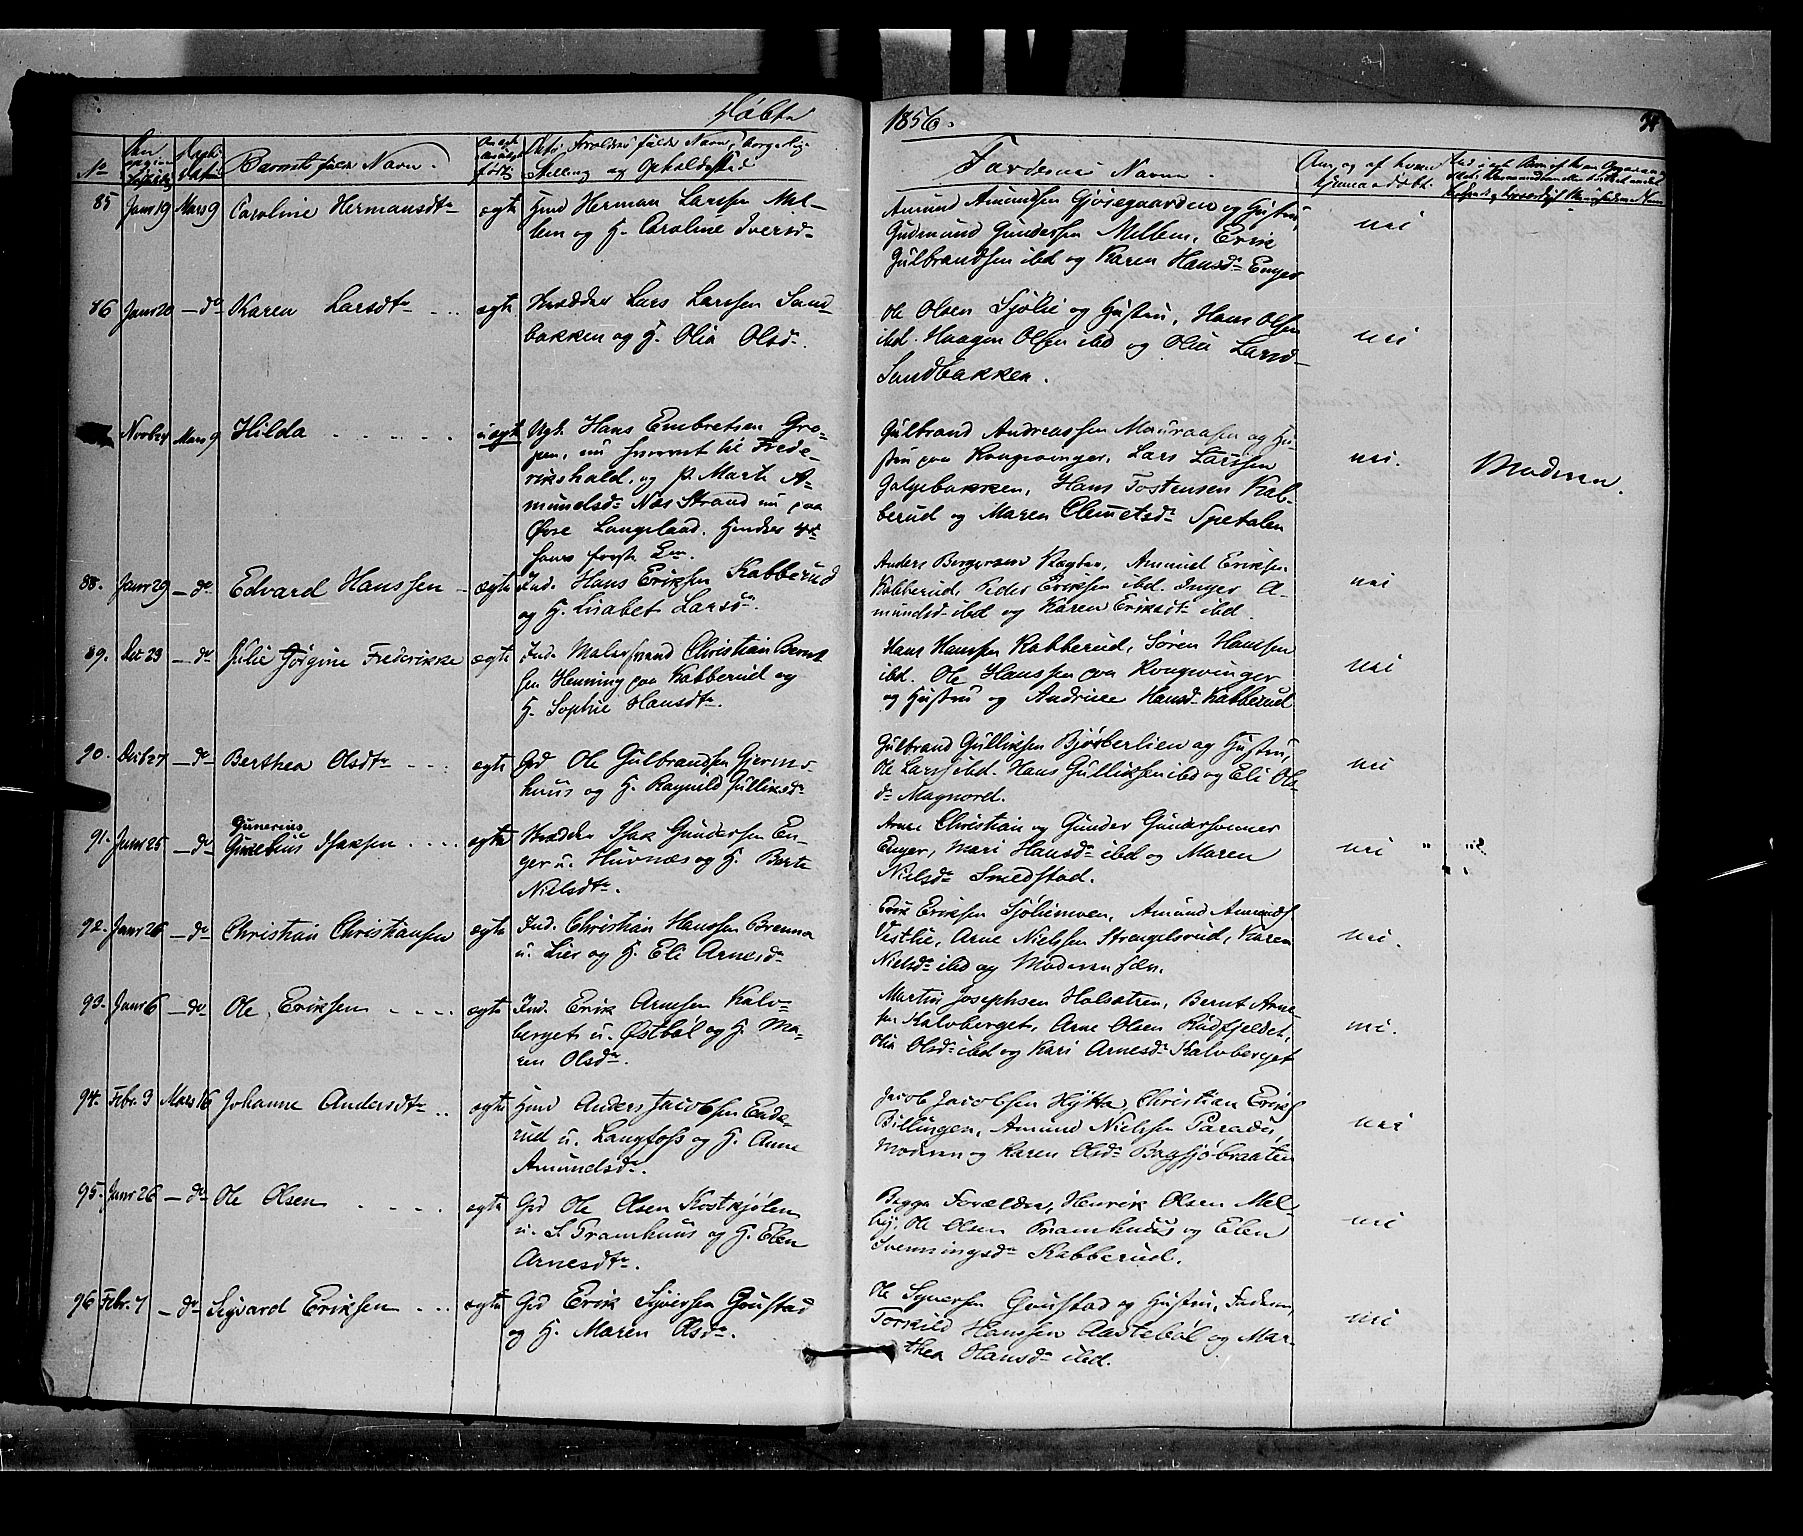 Døbte
1856.
No
Barnets fulde Navn.
Stilling og Opholdssted
Faddernes Navne
85 Janr 19 Mars 9 Caroline Hermansdtr ægte
Herman Larssen Mel-
bem og H. Caroline Iversdr
Amund Amundsen Gjøsegaarden og Hustru,
Gudmund Gundersen Melbem, Erik
Gulbrandsen ibd og Karen Hansdr Enger
nei
86 Janr 20 – do Karen Larsdtr ægte
Lars Larssen Sand-
bakken og H. Olia Olsdr.
Ole Olsen Sjølie og Hustru, Hans Olsen
ibd. Haagen Olsen ibd og Olia Larsdr
Sandbakken.
nei
Novbr 24 Mars 9 Hilda uægte
Ugt. Hans Embretsen Gro-
pen, nu til Frede-
rikshald, og P. Marte A-
mundsdr Næs Strand nu paa
Øvre Langeland. Hendes 4de
hans første
Gulbrand Andreassen Mauraasen og Hu-
stru paa Kongsvinger, Lars Larssen
Galgebakken, Hans Tostensen Kab-
berud og Maren Clemetsdr Spetalen
nei.
Moderen.
88. Janr 29 – do Edvard Hanssen ægte
Ind. Hans Eriksen Kabberud
og H. Lisabet Larsdr.
Anders Borgersen Amund Eriksen
Kabberud, Peder Eriksen ibd. Inger A-
mundsdr ibd og Karen Eriksdr ibd.
nei
89. Det 23 – do Julie Jørgine Frederikke ægte
Ind. Malersvend Christian Bernt
sen Henning paa Kabberud og
H. Sophie Hansdtr.
Hans Hanssen Kabberud, Søren Hanssen
ibd. Ole Hanssen paa Kongsvinger
og Hustru og Andrine Hansdr Kabberud
nei
90. Decbr 27 – do Berthea Olsdtr ægte
Grd Ole Gulbrandsen Gjerms-
huus og H. Ragnild Gulliksdr
Gulbrand Gulliksen Bjørberlien og Hustru,
Ole Larss ibd. Hans Gulliksen ibd og Eli Ols-
dr Magnord.
nei
91. Janr 25 – do Gunerius Isaksen ægte
Isak Gundersen En-
ger u. Huvnæs og H. Berte
Nielsdtr.
Arne Christian og Gunder Gundersønner
Enger, Mari Hansdr ibd og Maren
Nielsdr Smedstad.
nei
92. Janr 26 – do Christian Christiansen ægte
Ind. Christian Hanssen Brenna
u. Lier og H. Eli Arnesdr
Erik Eriksen Sjøliemoen, Amund Amunds
Vestlie, Arne Nielsen Strengelsrud, Karen
Nielsdr ibd og Moderen
nei.
93. Janr 6 – do Ole Eriksen ægte
Ind. Erik Arnesen Kalv-
berget u. Østbøl og H. Ma-
ren Olsdtr.
Martin Josephsen Holsætren, Bernt Arne-
sen Kalvberget, Arne Olsen Rødfjeldet,
Olia Olsdr ibd og Kari Arnesdr Kalvberget
nei.
94. Febr. 3 Mars 16 Johanne Andersdtr ægte
Anders Jacobsen Ende-
rud u. Langfoss og H. Anne
Amundsdr.
Jacob Jacobsen Hytta, Christian Eriks
Billingen, Amund Nielsen Paradis,
Moderen og Karen Olsdr Bogsjøbraaten
nei
95. Janr 26 – do Ole Olsen ægte
Grd Ole Olsen Kostkjølen
u. S. Framhuus og H. Elen
Arnesdtr.
Begge Forældre, Henrik Olsen Mel-
by, Ole Olsen Framhuus og Elen
Svenningsdr Kabberud.
nei
96 Febr. 7 – do Syvard Eriksen ægte
Grd Erik Syversen Grustad
og H. Maren Olsdr.
Ole Syversen Grustad og Hustru, Faderen,
Torkild Hanssen Aastebøl og Mar-
thea Hansdr ibd.
nei